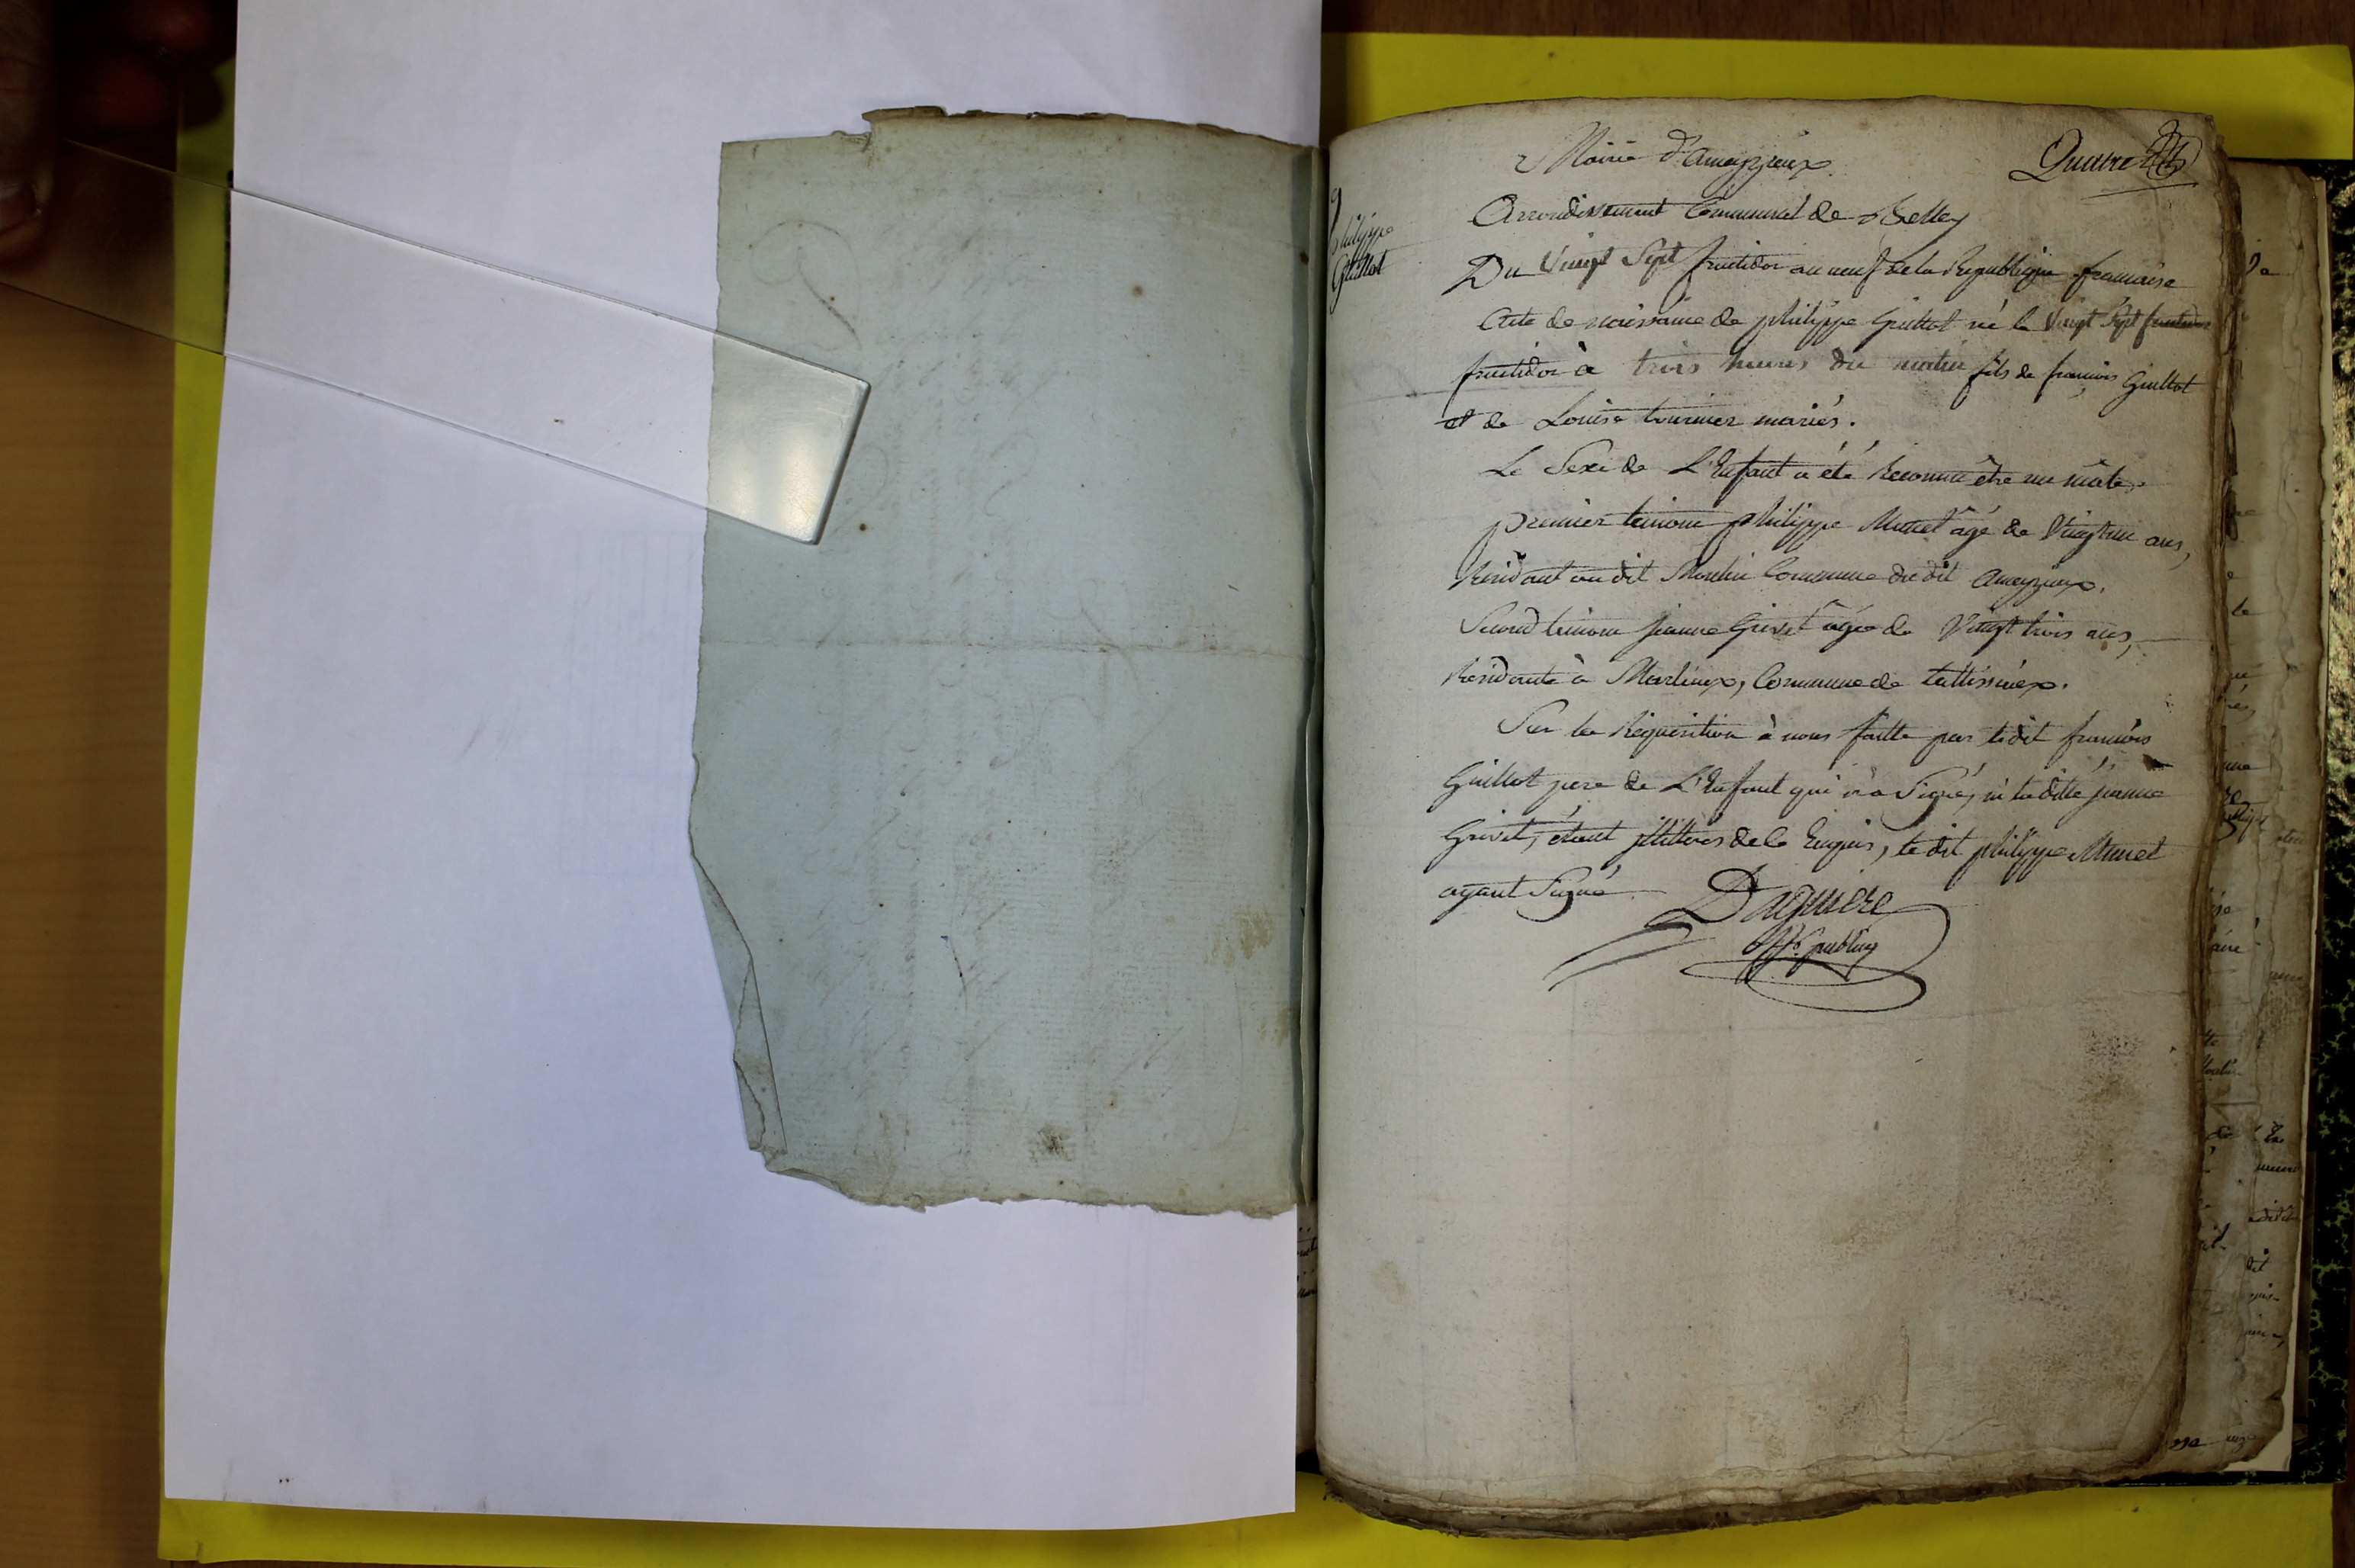 Mairie d'ameyzieux.
Quatre
Philippe
Guillot
Arrondissement Communal de Belley
Du Vingt Sept fructidor an neuf de la Republique francaise
Acte de naissance de philippe Guillot né le Vingt Sept fructidor
fructidor à trois heures du matin fils de francois Guillot
et de Louise tournier mariés.
Le Sexe de L'Enfant a été Reconnu être un mâle.
premier temoin philippe Munet âgé de Vingt un ans,
Residant au dit Moulin Commune du dit ameyzieux.
Second temoin jeanne Grivet âgée de Vingt trois ans,
Residante à Marlieux, Commune de tallissieux.
Sur la Requisition à nous faitte par ledit francois
Guillot pere de L'Enfant qui n'a Signé, ni laditte jeanne
Grivet, étant illittérés de Ce Enquis, le dit philippe Munet
ayant Signé